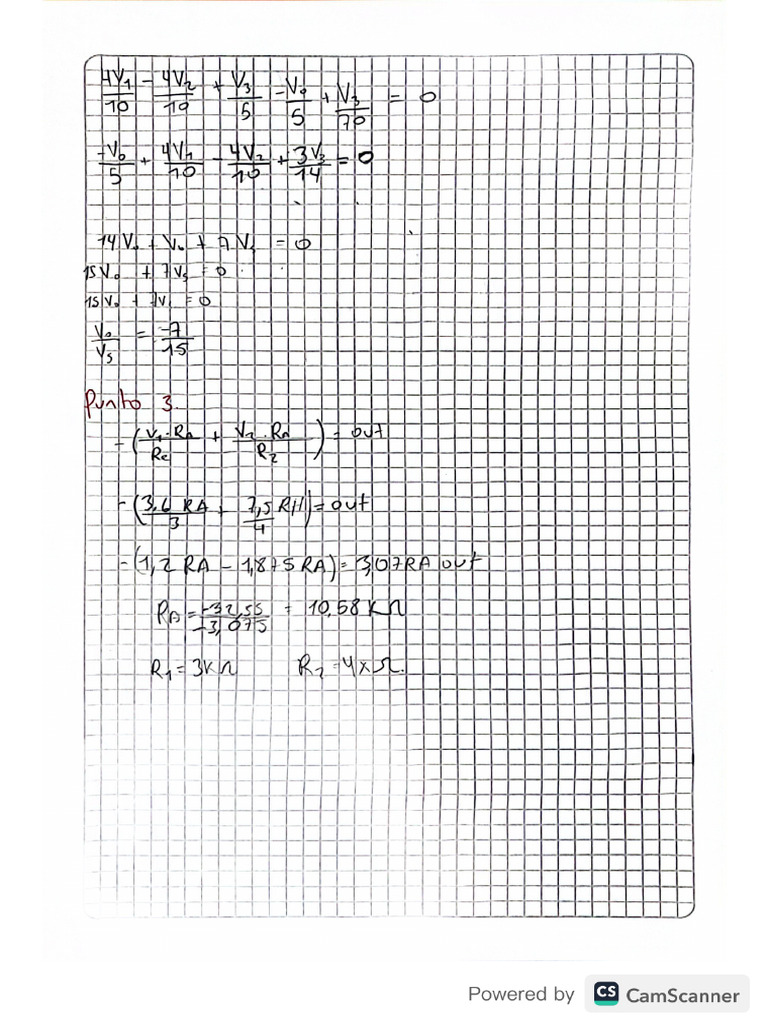 4V₁/10 - 4V₂/10 + V₃/5 - V₀/5 + V₃/70 = 0
-V₀/5 + 4V₁/10 - 4V₂/10 + 3V₃/14 = 0
14V₀ + V₀ + 7Vₛ = 0
15V₀ + 7Vₛ = 0
15V₀ + 7Vₛ = 0
V₀/Vₛ = -7/15
Punto 3.
-(V₁·Rₐ/Re + V₂·Rₐ/R₂) = out
-(3,6 RA/3 + 7,5 RA/4) = out
-(1,2 RA - 1,875 RA) = 3,07RA out
RA = -32,55/-3,075 = 10,58 kΩ
R₁ = 3kΩ R₂ = 4kΩ.
Powered by CS CamScanner